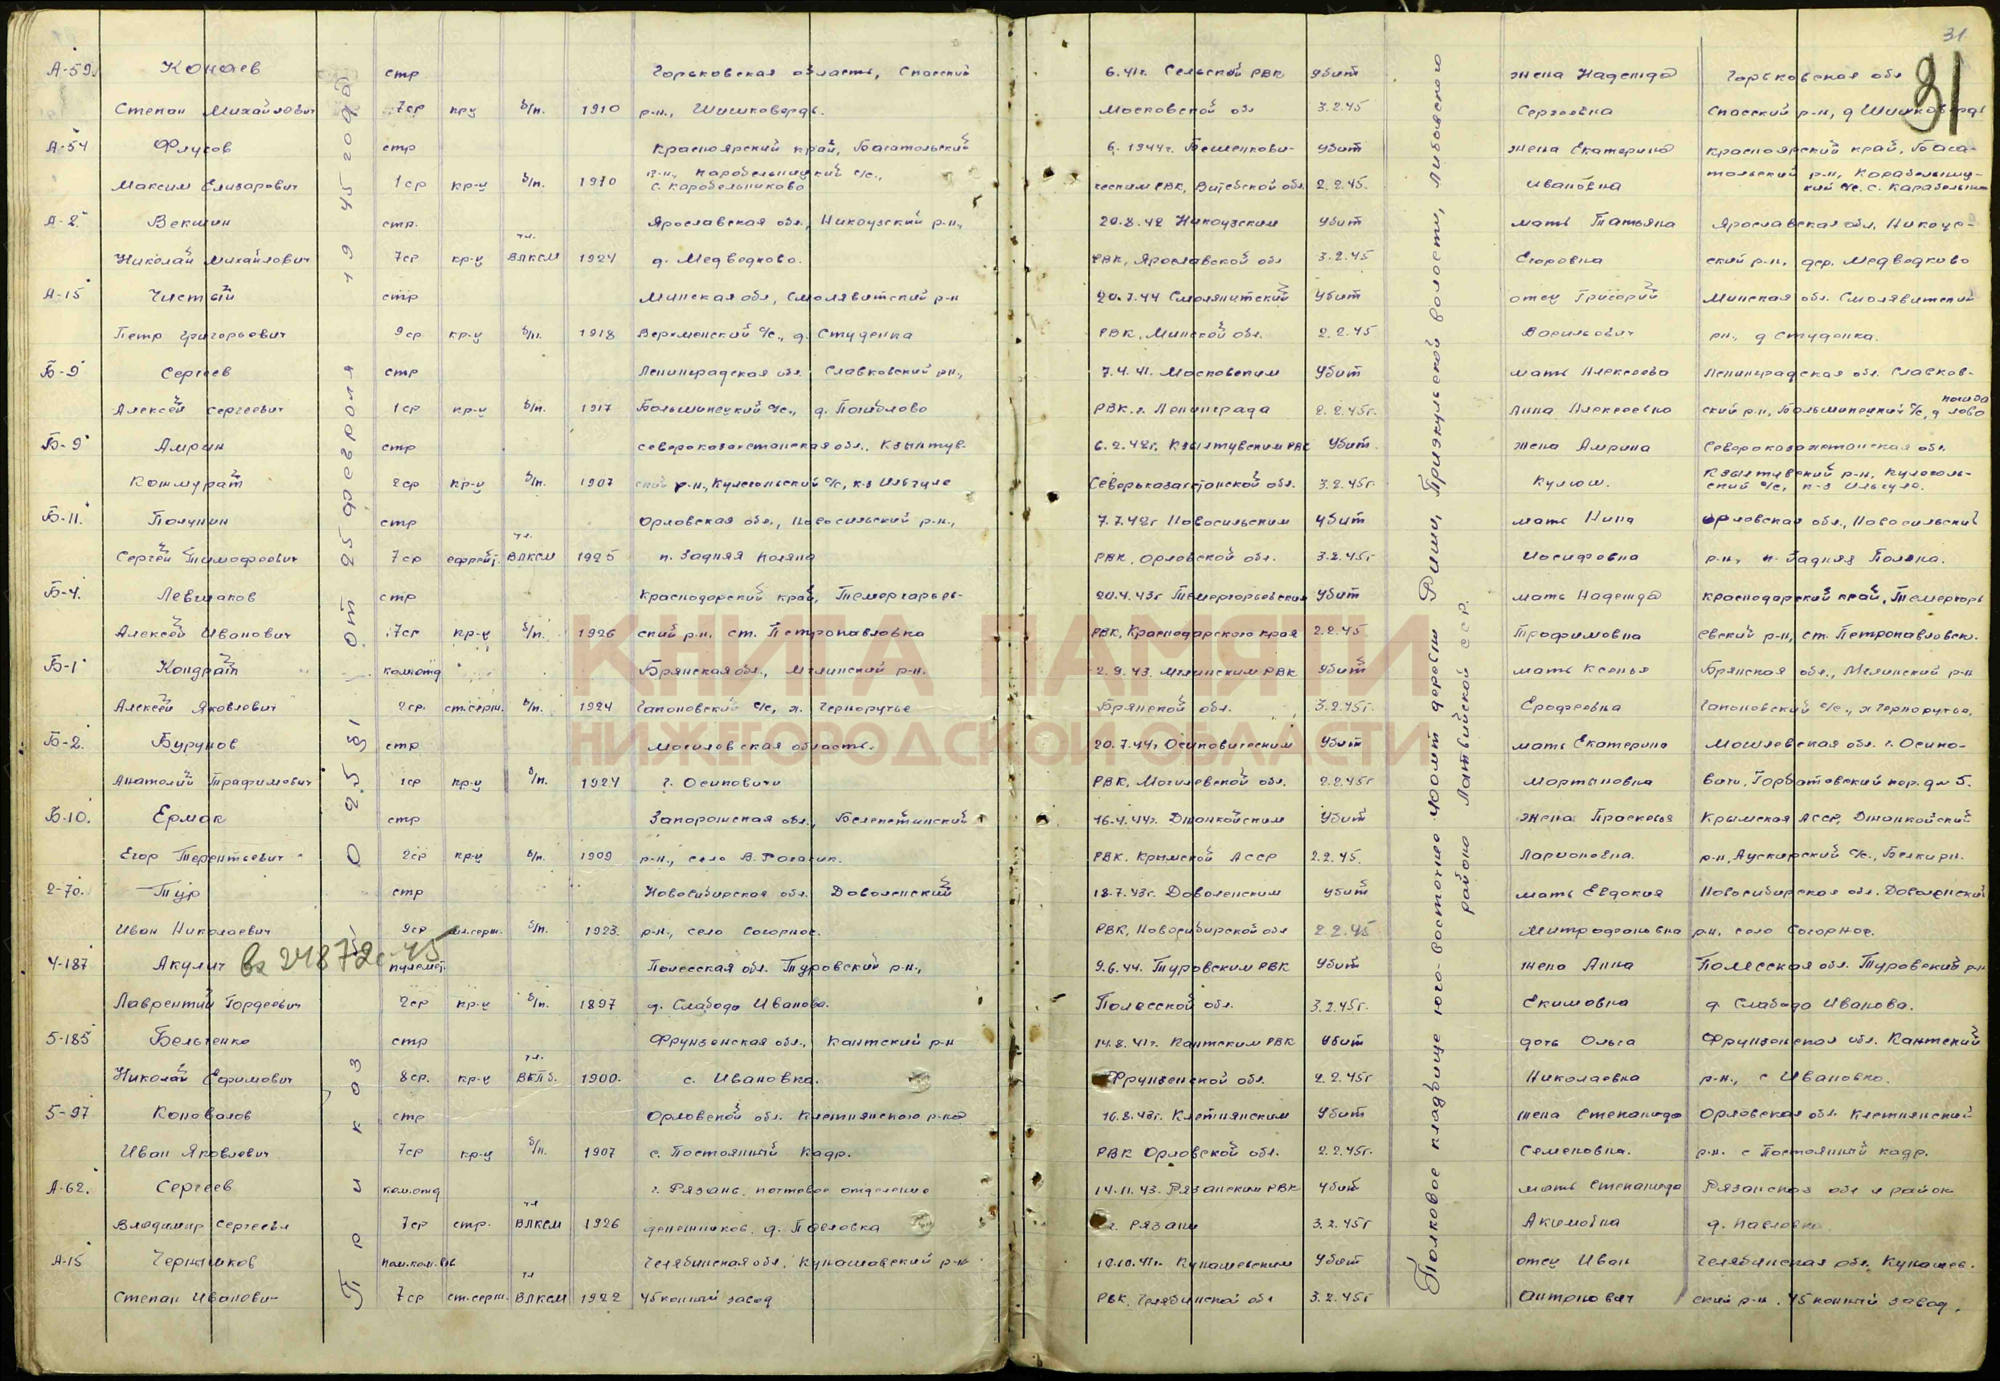 31
31
А-59. Конаев стр Горьковская область, Спасский 6.41г. Сельской РВК убит жена Надежда Горьковская обл
Степан Михайлович 7ср кр-ц б/п. 1910 р-н., Московской обл 3.2.45 Сергеевна Спасский р-н, д
А-54 Флусов стр Красноярский край, 6. 1944г. Бешенкови- убит жена Екатерина Красноярский край,
Максим Елизарович 1ср кр-ц б/п. 1910 р-н, Карабельницкий с/с., ческим РВК, Витебской обл. 2.2.45. Ивановна р-н,
с. Карабельниково кий с/с. с.
А-2 Векшин стр. Ярославская обл., Никоузский р-н, 20.8.42 Никоузским убит мать Татьяна Ярославская обл. Никоуз-
Николай Михайлович 7ср кр-ц чл. ВЛКСМ 1924 д. Медведково. РВК, Ярославской обл 3.2.45 Егоровна ский р-н, дер. Медведково
А-15 Чистый стр Минская обл, Смолявитский р-н 20.7.44 Смолянитский убит отец Григорий Минская обл. Смолявитский
Петр Григорьевич 9ср кр-ц б/п. 1918 с/с., д. Студенка РВК, Минской обл. 2.2.45 Васильевич рн., д Студенка.
Б-9 Сергеев стр Ленинградская обл. Славковский рн., 7.4.41. Московским убит мать Ленинградская обл. Славков-
Алексей Сергеевич 1ср кр-ц б/п. 1917 с/с., д. РВК. г. Ленинграда 2.2.45г. Анна Алексеевна ский р-н, с/с, д
Б-9 Амрин стр Северокозахстанская обл., Кзылтув- 6.2.42г. Кзылтувским РВК убит жена Амрина Северокозахстанская обл.
Кошмурат 2ср кр-ц б/п. 1907 ский р-н., с/с, к-з Северьказахстанской обл. 3.2.45г. Кулюш. Кзылтувский р-н,
ский с/с, к-з
Б-11. Полунин стр Орловская обл., Новосильский р-н., 7.7.42г Новосильским убит мать Нина Орловская обл., Новосильский
Сергей Тимофеевич 7ср ефрейт. чл. ВЛКСМ 1925 п. Задняя поляна РВК, Орловской обл. 3.2.45г Иосифовна р-н, п. Задняя Поляна.
Б-4. Левшаков стр Краснодарский край, Темергоръев- 20.4.43г Темергоръевским убит мать Надежда Краснодарский край,
Алексей Иванович 7ср кр-ц б/п. 1926 ский р-н. ст. Петропавловка РВК, Краснодарского края 2.2.45 Трофимовна евский р-н, ст. Петропавловск.
Б-1 Кондрат ком.отд Брянская обл., Мглинский р-н. 2.9.43. Мглинским РВК убит мать Ксенья Брянская обл., Мглинский р-н
Алексей Яковлевич 2ср. ст.серж. б/п. 1924 Гапоновский с/с, х. Чернорутье Брянской обл. 3.2.45г. Ерофеевна Гапоновский с/с., х Чернорутье.
Б-2. Бурунов стр Могилевская область. 20.7.44г Осиповическим убит мать Екатерина Могилевская обл. г. Осипо-
Анатолий Трафимович 1ср кр-ц б/п. 1924 г. Осиповичи РВК, Могилевской обл. 2.2.45г Мартыновна вичи,
Б-10. Ермак стр Запорожская обл., 16.4.44г. Джанкойским убит жена Прасковья Крымская АССР, Джанкойский
Егор Терентьевич 2ср кр-ц б/п. 1909 р-н., село В. Рогачик. РВК. Крымской АССР 2.2.45. Ларионовна. р-н,
2-70. Тур стр Новосибирская обл. Доволенский 18.7.43г. Доволенским убит мать Евдокия Новосибирская обл. Доволенский
Иван Николаевич 9ср мл.серж. б/п. 1923. р-н., село Согорное. РВК, Новосибирской обл 2.2.45 Митрофановна р-н. село Согорное.
4-187 Акулич вх 24872с-45 пулемет. Полесская обл. Туровский р-н., 9.6.44. Туровским РВК убит жена Анна Полесская обл. Туровский р-н
Лаврентий Гордеевич 2ср кр-ц б/п. 1897 д. Слабода Иванова. Полесской обл. 3.2.45г. Екимовна д. Слабода Иванова.
5-185 Бельченко стр Фрунзенская обл., Кантский р-н 14.8.41г. Кантским РВК убит дочь Ольга Фрунзенская обл. Кантский
Николай Ефимович 8ср. кр-ц чл. ВКПб. 1900. с. Ивановка. Фрунзенской обл. 2.2.45г Николаевна р-н., с Ивановка.
5-97 Коновалов стр Орловской обл. Клетнянского р-на 16.8.43г. Клетнянским убит жена Степанида Орловская обл Клетнянский
Иван Яковлевич 7ср кр-ц б/п. 1907 с. Постоянный кадр. РВК Орловской обл. 2.2.45г. Семеновна. р-н. с Постоянный кадр.
А-62. Сергеев ком.отд г. Рязань, почтовое отделение 14.11.43. Рязанским РВК убит мать Степанида Рязанская обл и район
Владимир Сергееви 7ср стр. чл ВЛКСМ 1926 д. Павловка г. Рязани 3.2.45г Акимовна д. Павловка
А-15 Чернышков пом.ком.вв Челябинская обл. Кунашакский р-н 10.10.41г. Кунашевским убит отец Иван Челябинская обл. Кунашев-
Степан Иванови- 7ср ст.серж. чл ВЛКСМ 1922 45 конный завод РВК. Челябинской обл 3.2.45г Антонович ский р-н. 45 конный завод.
Приказ 0 251 от 25 февроля 1945 года
Полковое кладбище юго-восточнее 400мт деревни Риши, Приэкульской волости, Либавского
района Латвийской ССР.
КНИГА ПАМЯТИ
НИЖЕГОРОДСКОЙ ОБЛАСТИ